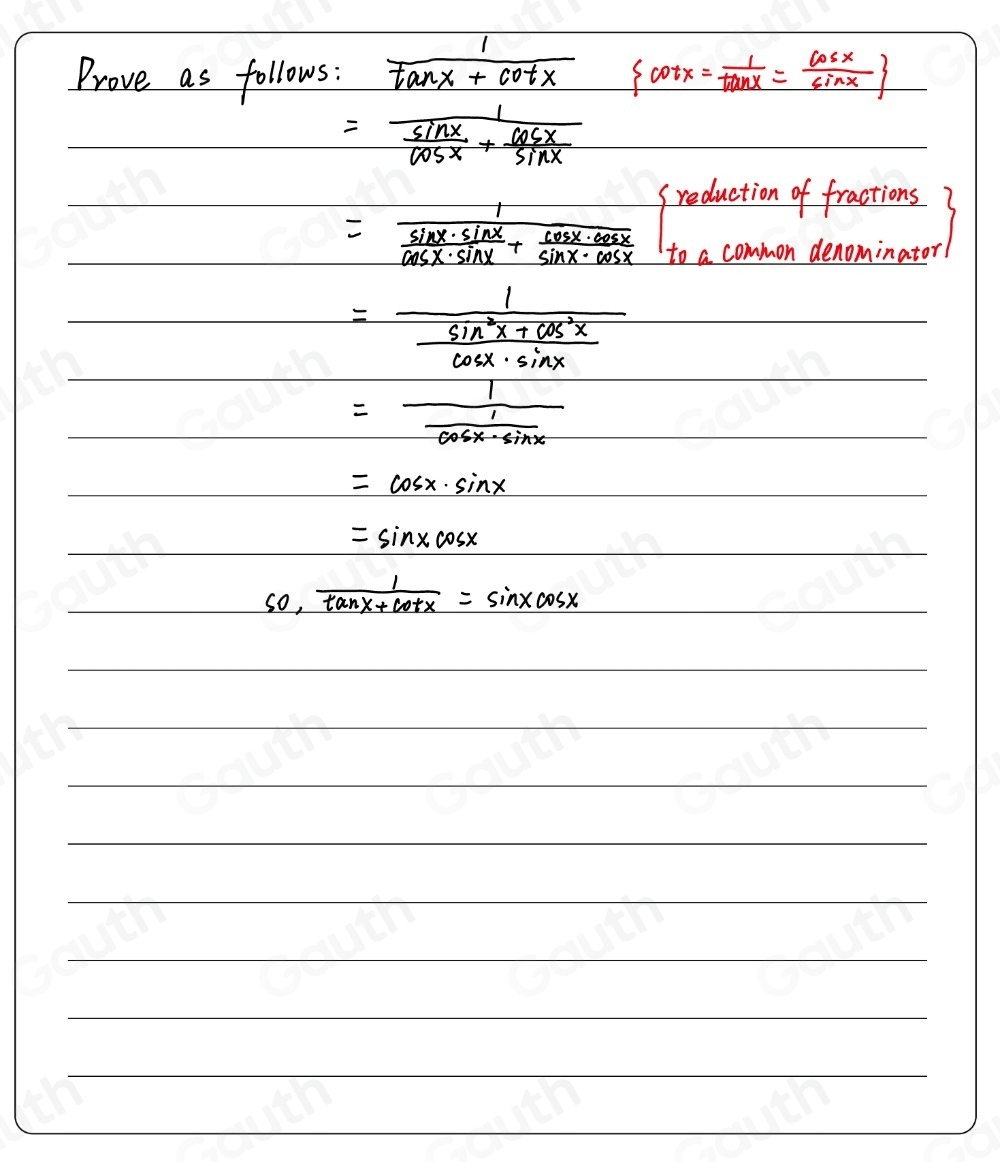 Prove as follows: 1/(tanx + cotx) {cotx = 1/tanx = cosx/sinx}
= 1/(sinx/cosx + cosx/sinx)
= 1/((sinx·sinx)/(cosx·sinx) + (cosx·cosx)/(sinx·cosx)) {reduction of fractions
to a common denominator}
= 1/((sin²x + cos²x)/(cosx · sinx))
= 1/(1/(cosx · sinx))
= cosx · sinx
= sinx cosx
so, 1/(tanx + cotx) = sinx cosx
Gauth